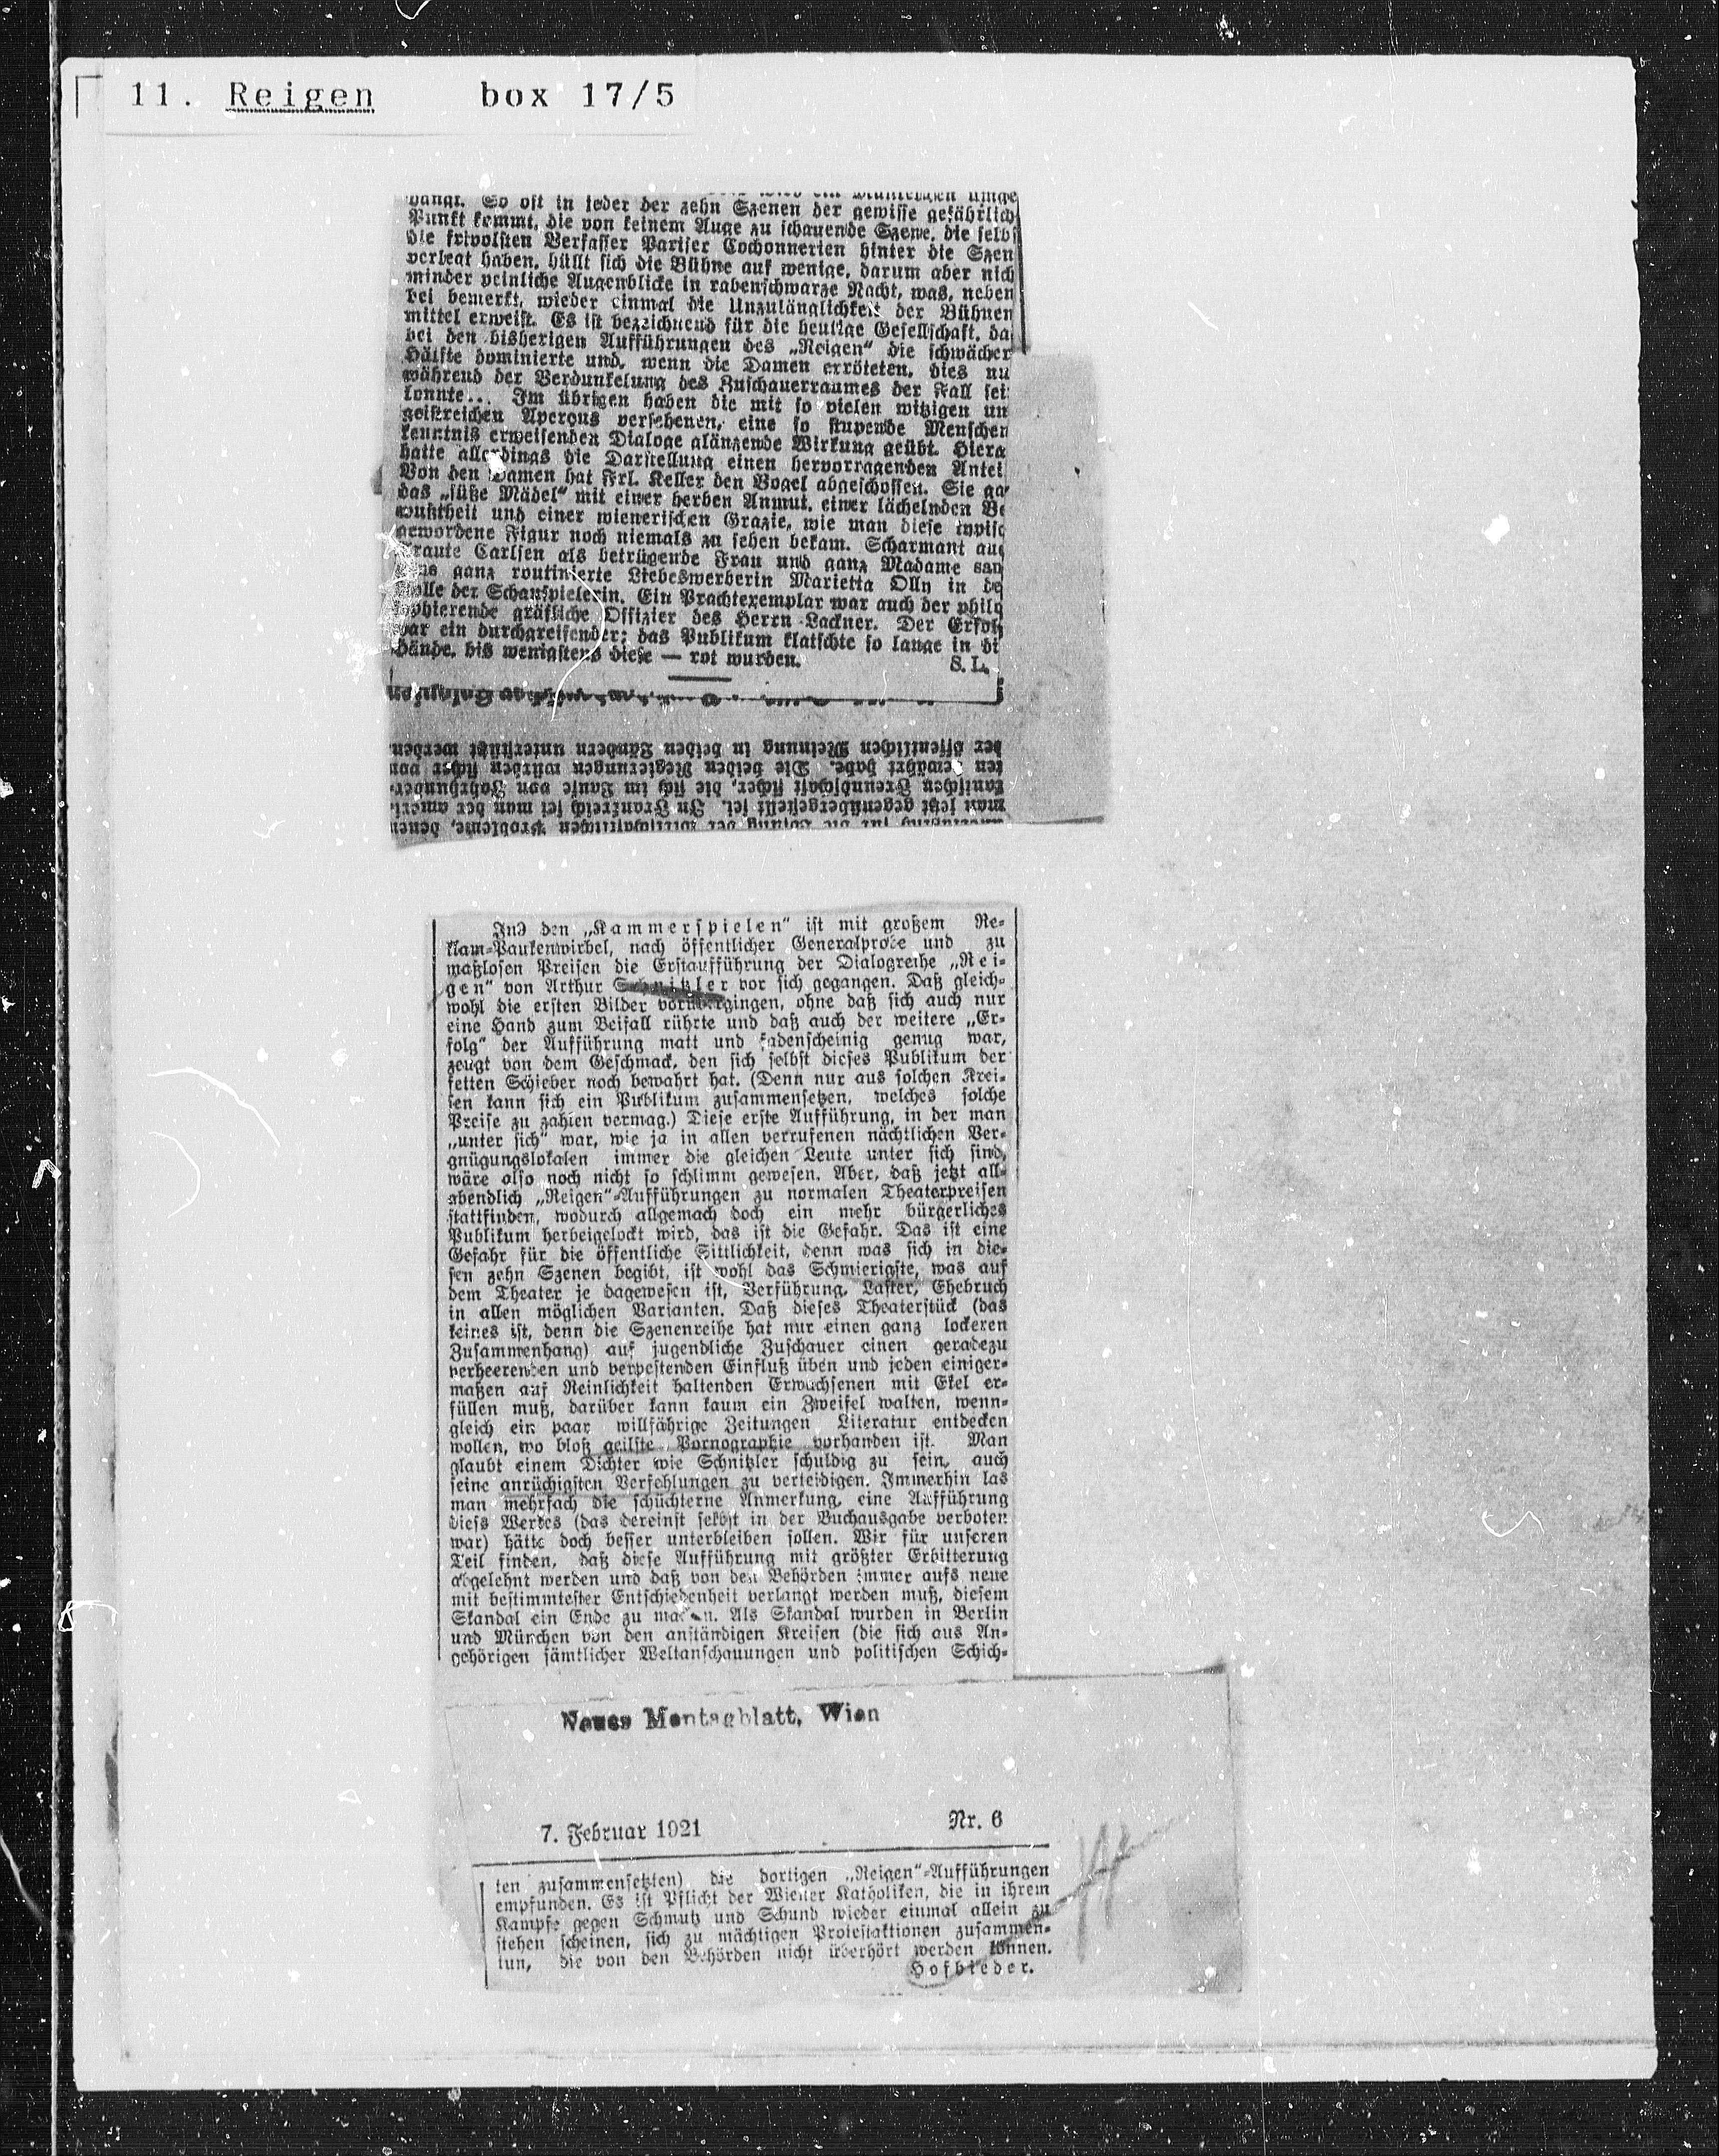 11. Reigen box 17/5
hängt. So oft in jeder der zehn Szenen der gewisse gefährlich
Punkt kommt, die von keinem Auge zu schauende Szene, die selbs
die frivolsten Verfasser Pariser Cochonnerien hinter die Szen
verlegt haben, hüllt sich die Bühne auf wenige, darum aber nich
minder peinliche Augenblicke in rabenschwarze Nacht, was, neben
bei bemerkt, wieder einmal die Unzulänglichkeit der Bühnen
mittel erweist. Es ist bezeichnend für die heutige Gesellschaft, da
bei den bisherigen Aufführungen des „Reigen“ die schwächer
Hälfte dominierte und, wenn die Damen erröteten, dies nu
während der Verdunkelung des Zuschauerraumes der Fall sei
konnte... Im übrigen haben die mit so vielen witzigen un
geistreichen Aperçus versehenen, eine so stupende Menschen
kenntnis erweisenden Dialoge glänzende Wirkung geübt. Hiera
hatte allerdings die Darstellung einen hervorragenden Antei
Von den Damen hat Frl. Keller den Vogel abgeschossen. Sie ga
das „süße Mädel“ mit einer herben Anmut, einer lächelnden Be
wußtheit und einer wienerischen Grazie, wie man diese typisc
gewordene Figur noch niemals zu sehen bekam. Scharmant auc
Traute Carlsen als betrügende Frau und ganz Madame san
ganz routinierte Liebeswerberin Marietta Olly in de
olle der Schauspielerin. Ein Prachtexemplar war auch der philo
ophierende gräfliche Offizier des Herrn Lackner. Der Erfol
war ein durchgreifender; das Publikum klatschte so lange in di
Hände, bis wenigstens diese — rot wurden.
S. L.
der öffentlichen Meinung in beiden Ländern unterstützt werden.
ten bewährt habe. Die beiden Regierungen würden sicher von
kanischen Freundschaft sicher, die sich im Laufe von Jahrhunder-
man jetzt gegenübergestellt sei. In Frankreich sei man der ameri-
für die Lösung der wirtschaftlichen Probleme, denen
Ind den „Kammerspielen“ ist mit großem Re-
klam-Paukenwirbel, nach öffentlicher Generalprobe und zu
maßlosen Preisen die Erstaufführung der Dialogreihe „Rei-
gen“ von Arthur Schnitzler vor sich gegangen. Daß gleich-
wohl die ersten Bilder vorübergingen, ohne daß sich auch nur
eine Hand zum Beifall rührte und daß auch der weitere „Er-
folg“ der Aufführung matt und fadenscheinig genug war,
zeugt von dem Geschmack, den sich selbst dieses Publikum der
fetten Schieber noch bewahrt hat. (Denn nur aus solchen Krei-
sen kann sich ein Publikum zusammensetzen, welches solche
Preise zu zahlen vermag.) Diese erste Aufführung, in der man
„unter sich“ war, wie ja in allen verrufenen nächtlichen Ver-
gnügungslokalen immer die gleichen Leute unter sich sind,
wäre also noch nicht so schlimm gewesen. Aber, daß jetzt all-
abendlich „Reigen“-Aufführungen zu normalen Theaterpreisen
stattfinden, wodurch allgemach doch ein mehr bürgerliches
Publikum herbeigelockt wird, das ist die Gefahr. Das ist eine
Gefahr für die öffentliche Sittlichkeit, denn was sich in die-
sen zehn Szenen begibt, ist wohl das Schmierigste, was auf
dem Theater je dagewesen ist, Verführung, Laster, Ehebruch
in allen möglichen Varianten. Daß dieses Theaterstück (das
keines ist, denn die Szenenreihe hat nur einen ganz lockeren
Zusammenhang) auf jugendliche Zuschauer einen geradezu
verheerenden und verpestenden Einfluß üben und jeden einiger-
maßen auf Reinlichkeit haltenden Erwachsenen mit Ekel er-
füllen muß, darüber kann kaum ein Zweifel walten, wenn-
gleich ein paar willfährige Zeitungen Literatur entdecken
wollen, wo bloß geilste Pornographie vorhanden ist. Man
glaubt einem Dichter wie Schnitzler schuldig zu sein, auch
seine anrüchigsten Verfehlungen zu verteidigen. Immerhin las
man mehrfach die schüchterne Anmerkung, eine Aufführung
diess Werkes (das dereinst selbst in der Buchausgabe verboten
war) hätte doch besser unterbleiben sollen. Wir für unseren
Teil finden, daß diese Aufführung mit größter Erbitterung
abgelehnt werden und daß von den Behörden immer aufs neue
mit bestimmtester Entschiedenheit verlangt werden muß, diesem
Skandal ein Ende zu machen. Als Skandal wurden in Berlin
und München von den anständigen Kreisen (die sich aus An-
gehörigen sämtlicher Weltanschauungen und politischen Schich-
Neues Montagblatt, Wien
7. Februar 1921 Nr. 6
ten zusammensetzten) die dortigen „Reigen“-Aufführungen
empfunden. Es ist Pflicht der Wiener Katholiken, die in ihrem
Kampfe gegen Schmutz und Schund wieder einmal allein zu
stehen scheinen, sich zu mächtigen Protestaktionen zusammen-
tun, die von den Behörden nicht überhört werden können.
Hofbieder.